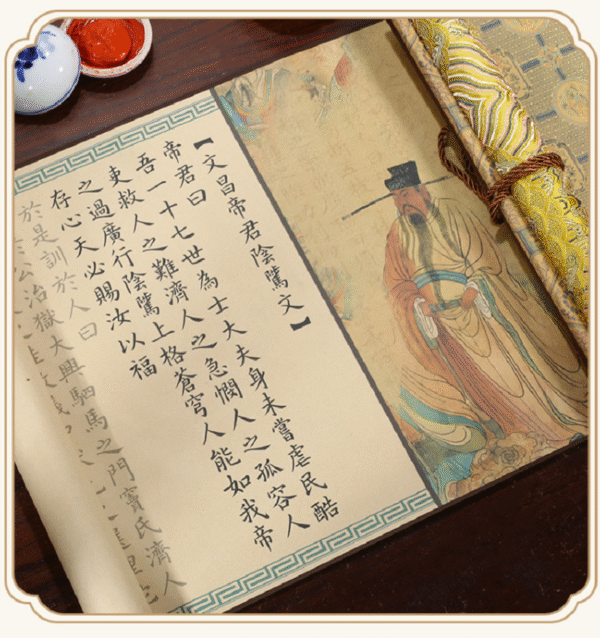 【文昌帝君陰騭文】
帝君曰
吾一十七世為士大夫身未嘗虐民酷
吏救人之難濟人之急憫人之孤容人
之過廣行陰騭上格蒼穹人能如我帝
存心天必賜汝以福
於是訓於人曰
公治獄大興駟馬之門竇氏濟人